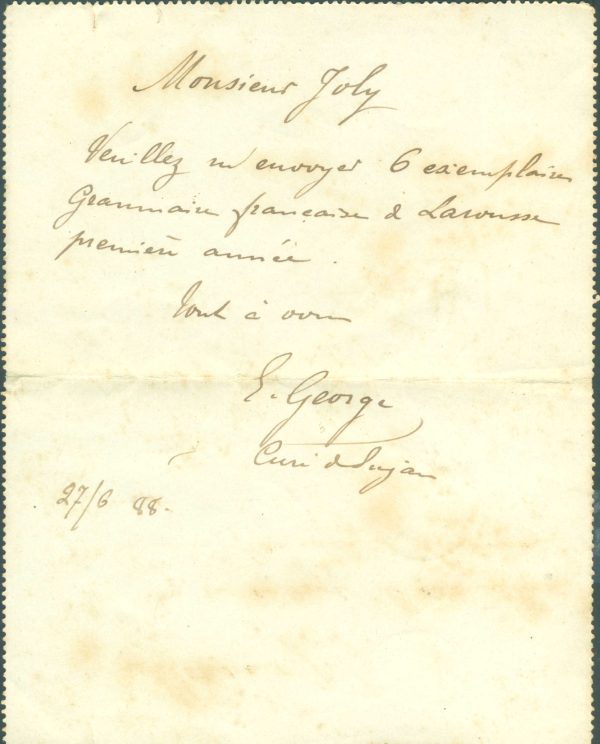 Monsieur Joly
Veuillez m'envoyer 6 exemplaires
Grammaire française de Larousse
première année.
Tout à vous
E. George
Curé de
27/6 88.